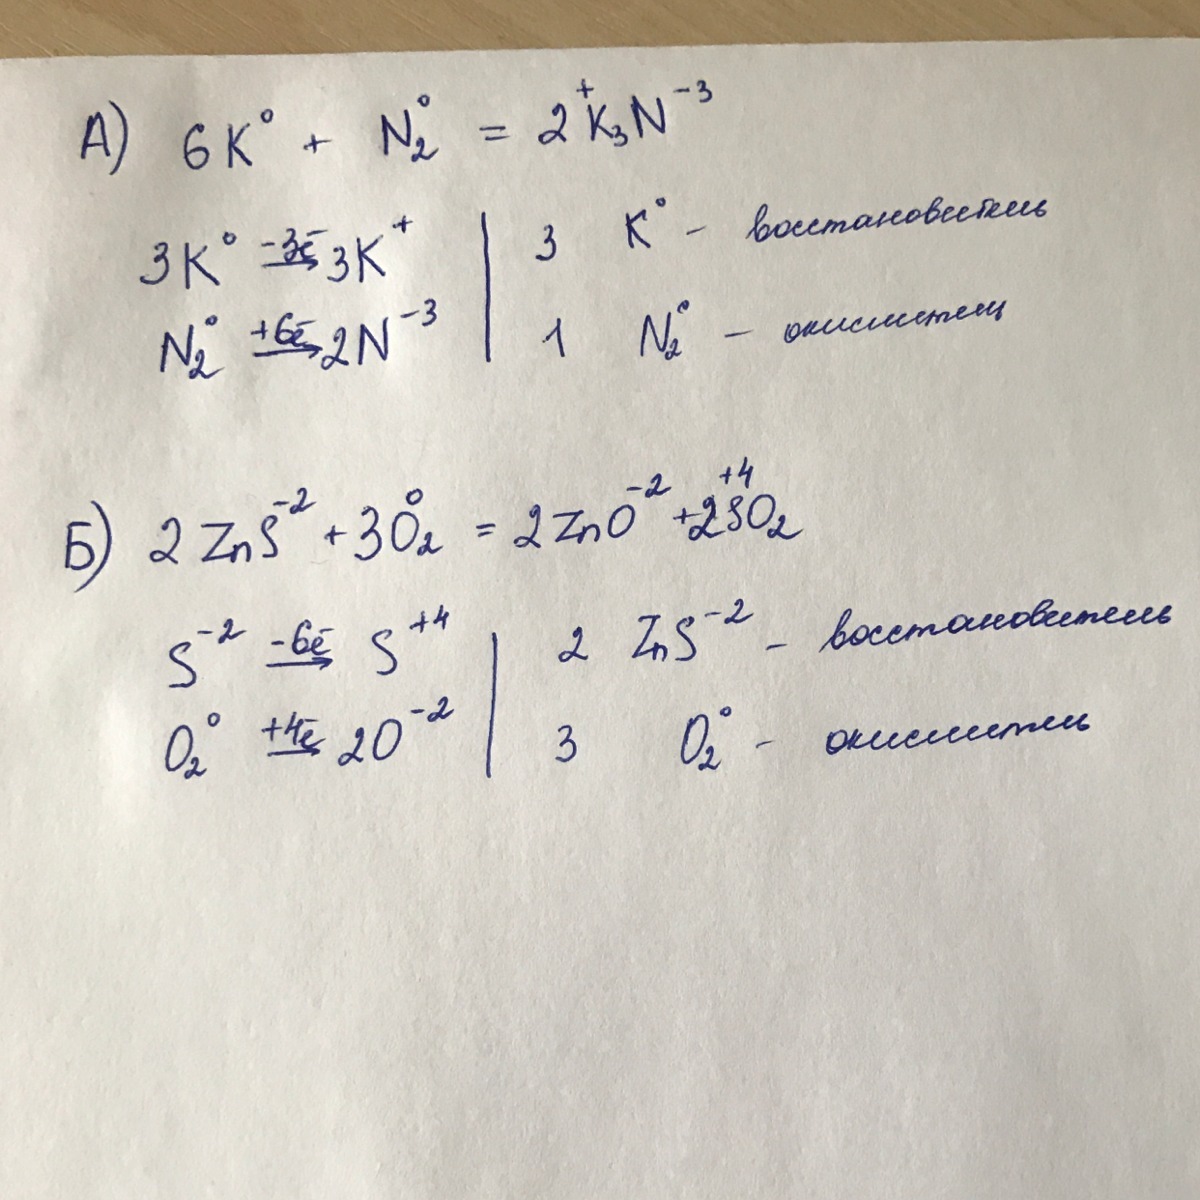 А) 6K⁰ + N₂⁰ = 2K⁺₃N⁻³
3K⁰ -3ē→ 3K⁺ | 3 K⁰ - восстановитель
N₂⁰ +6ē→ 2N⁻³ | 1 N₂⁰ - окислитель
Б) 2ZnS⁻² + 3O₂⁰ = 2ZnO⁻² + 2S⁺⁴O₂
S⁻² -6ē→ S⁺⁴ | 2 ZnS⁻² - восстановитель
O₂⁰ +4ē→ 2O⁻² | 3 O₂⁰ - окислитель